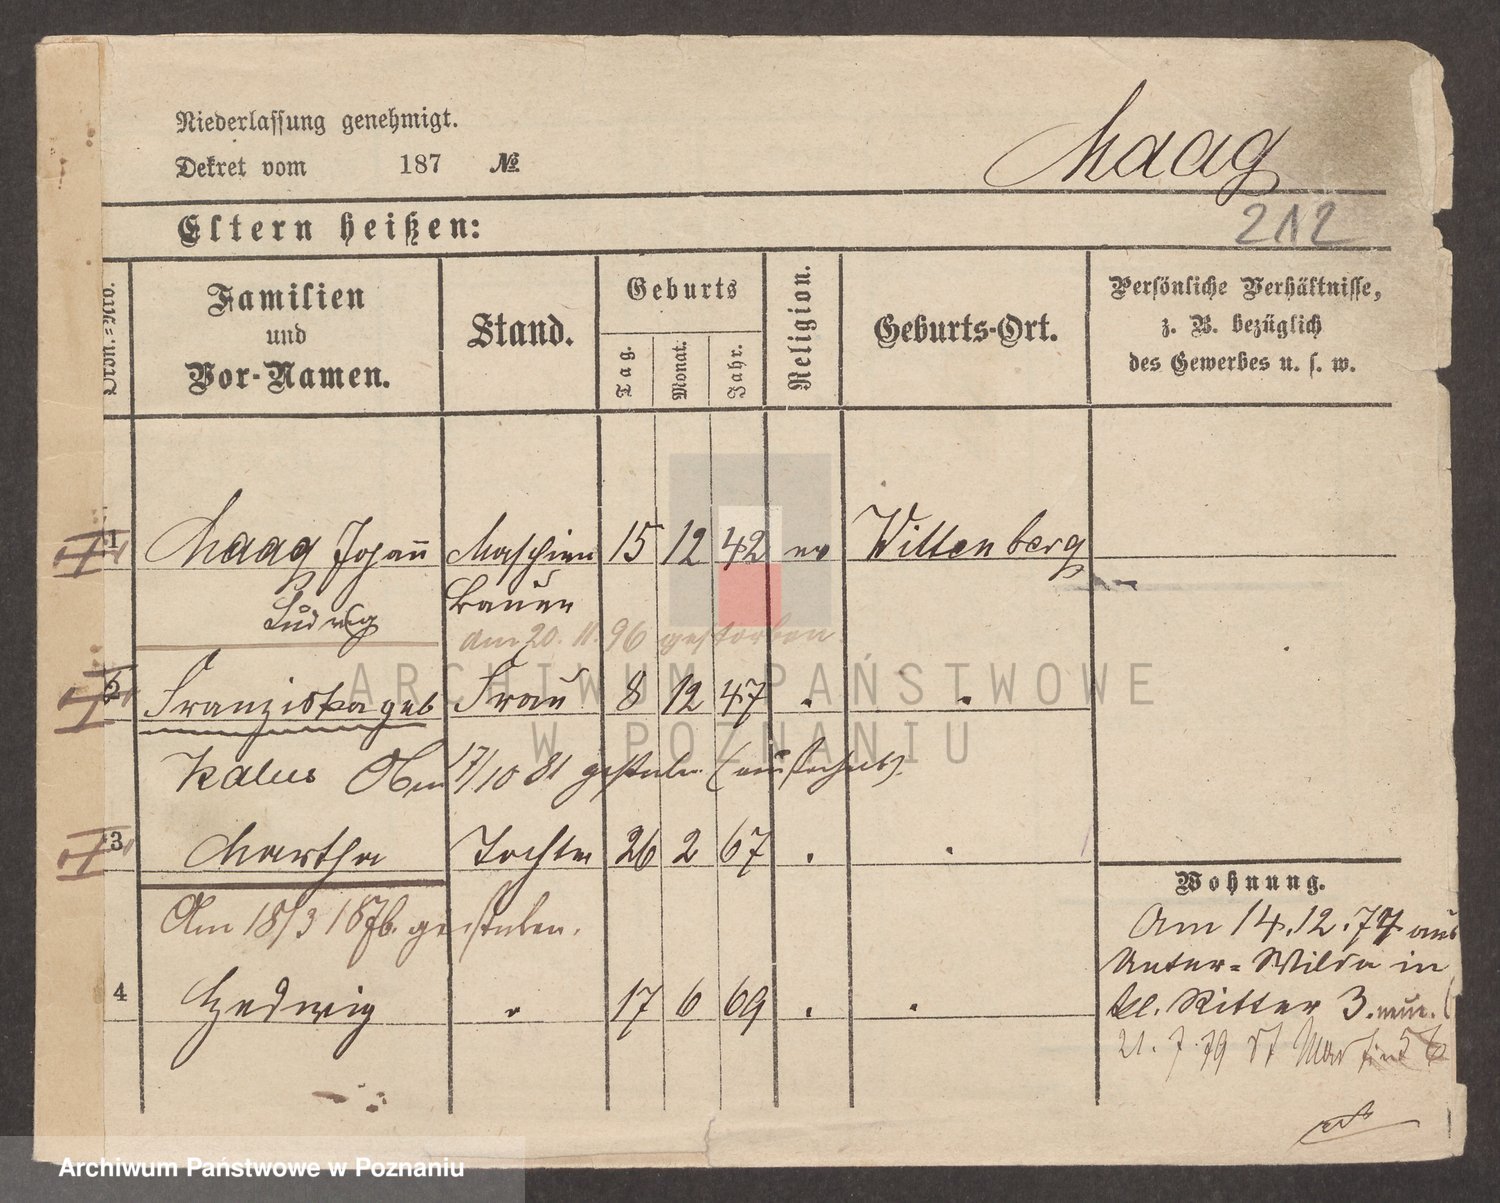 Niederlassung genehmigt.
Dekret vom 187 №
Maag
212
Eltern heißen:
Familien und Vor-Namen.
Stand.
Geburts
Tag.
Monat.
Jahr.
Religion.
Geburts-Ort.
Persönliche Verhältnisse,
z. B. bezüglich
des Gewerbes u. s. w.
1 Maag Johann Maschinen 15 12 42 ev Wittenberg
Ludwig bauer
am 20. 11. 96 gestorben
2 Franziska geb Frau 8 12 47 " "
17/10 81
3 Martha Tochter 26 2 67 " "
Am 18/3 1876 gestorben.
Wohnung.
Am 14.12.77 aus
Unter-Wilda in
kl. Ritter 3.
4 Hedwig " 17 6 69 " "
21. 7. 79 St Martin
ARCHIWUM PAŃSTWOWE
W POZNANIU
Archiwum Państwowe w Poznaniu